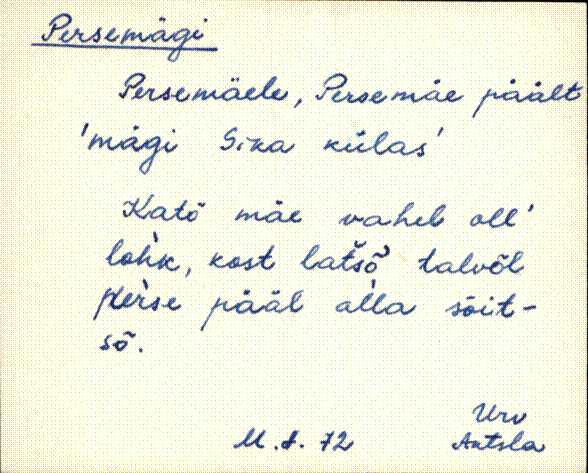 Persemägi
Persemäele, Persemäe päält
'mägi Sika külas'
Katõ mäe vaheb oll'
lohk, kost latsõ' talvõl
perse pääl alla sõit-
sõ.
Urv
M. F. 72 Antsla